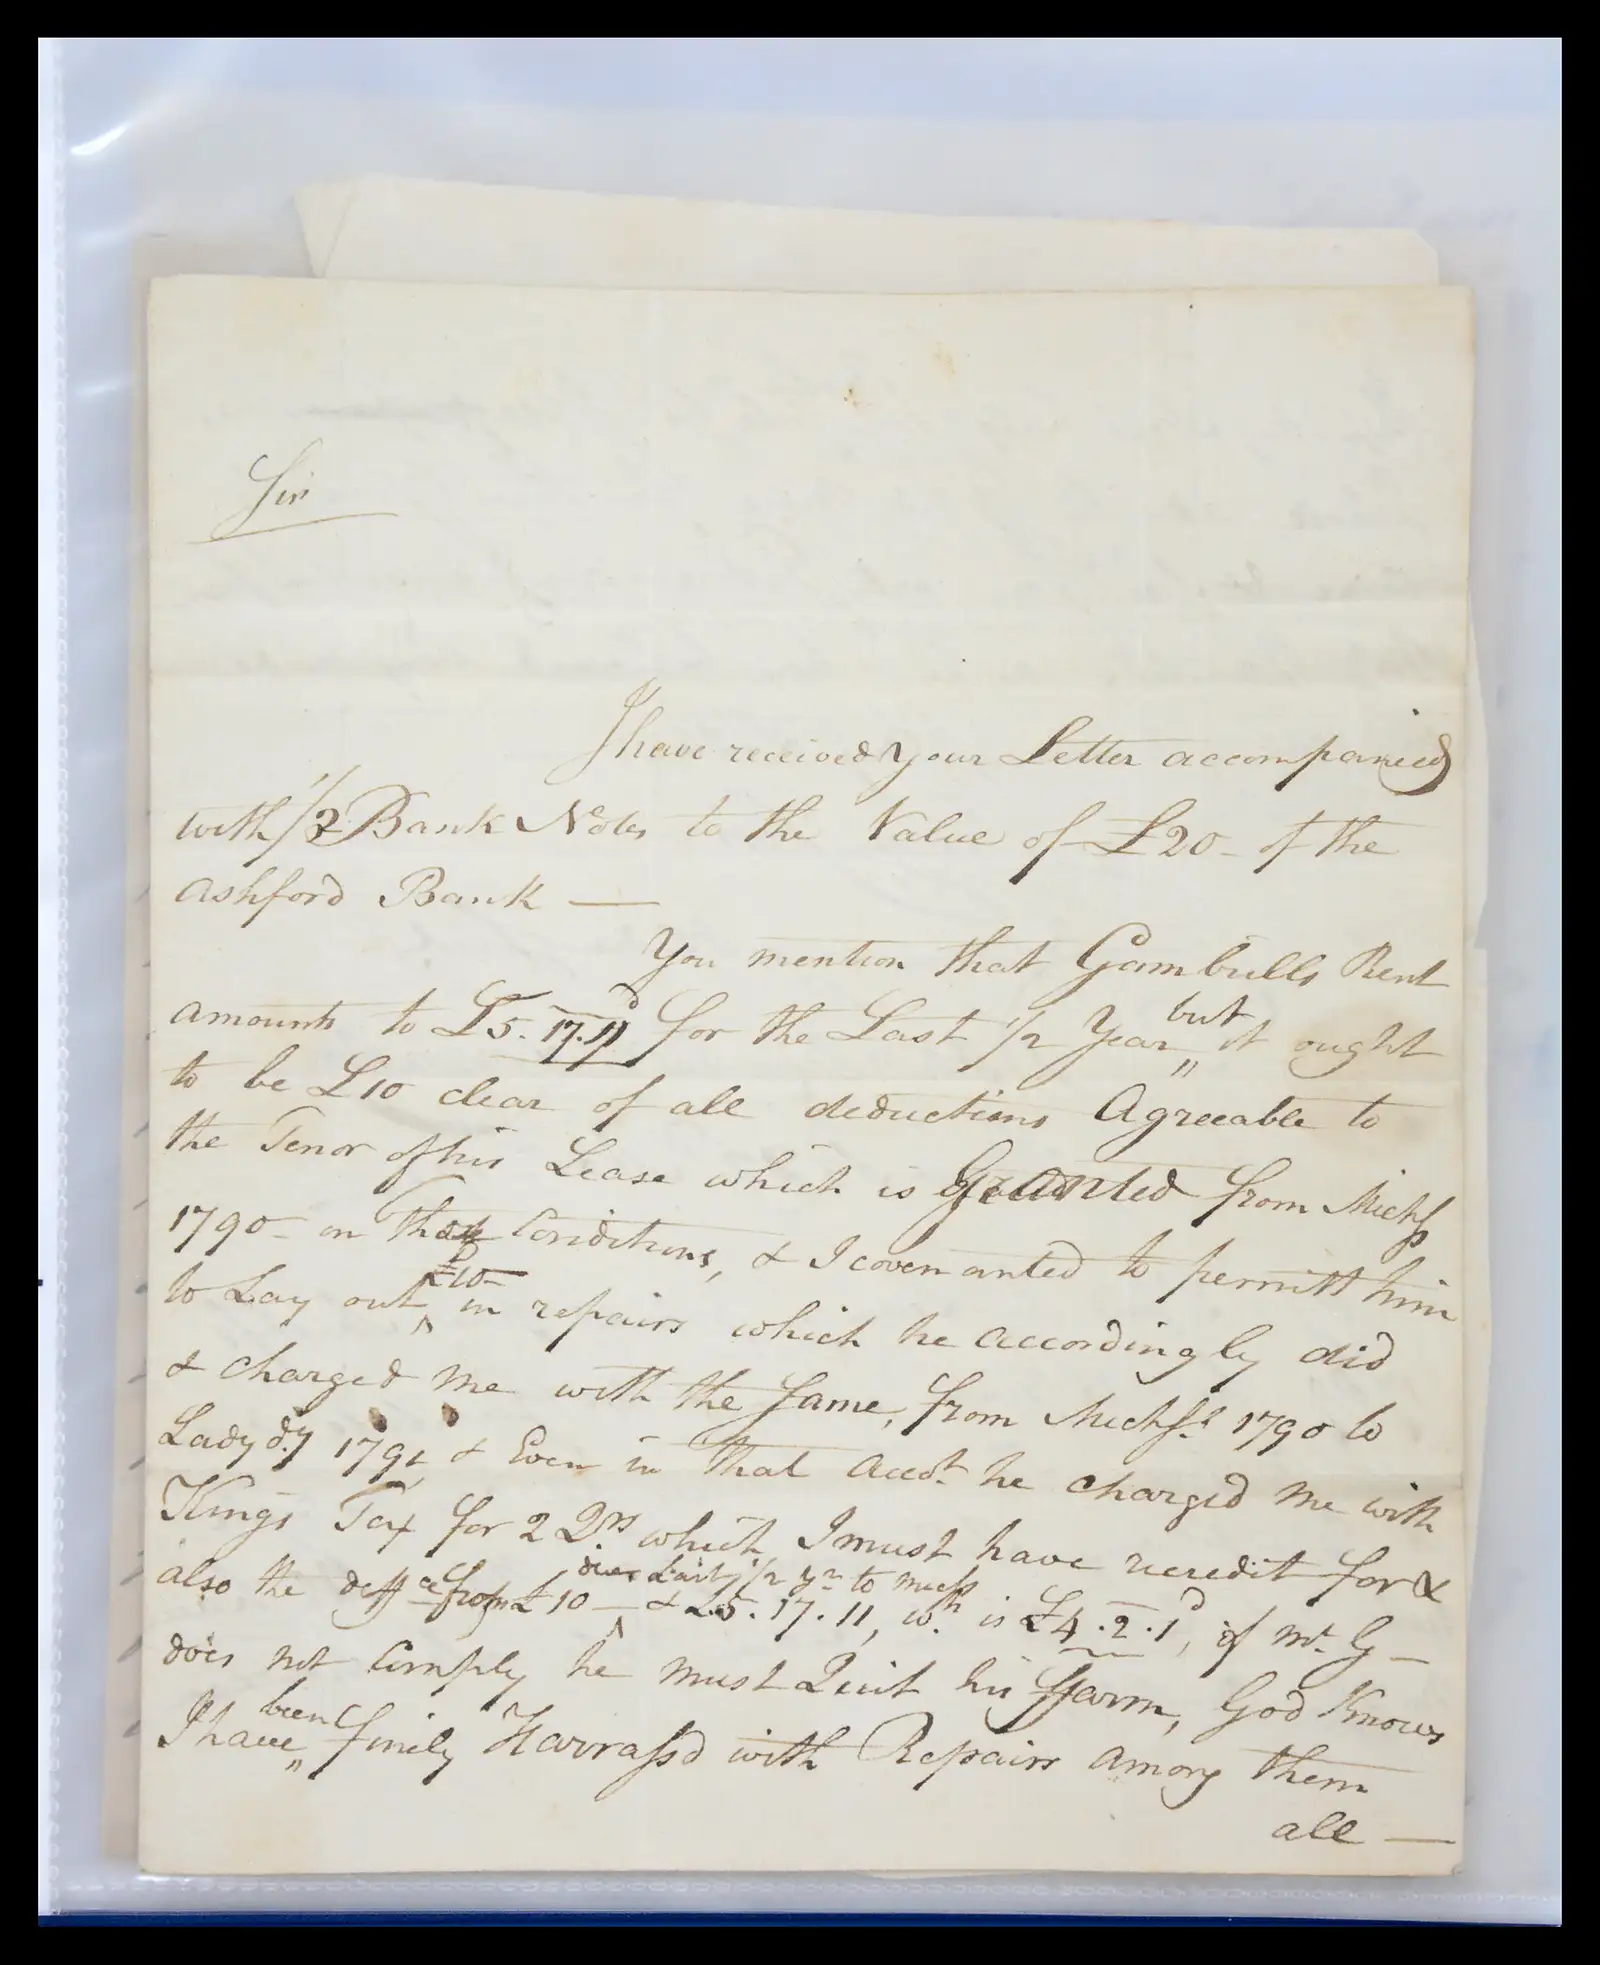 Sir
I have received your Letter accompanied
with 1/2 Bank Notes to the Value of £20 - of the
Ashford Bank —
You mention that Gambrills Rent
amounts to £5. 17. 11d for the Last 1/2 Year but it ought
to be £10 clear of all deductions Agreeable to
the Tenor of his Lease which is Granted from Michs
1790 - on Conditions, & I covenanted to permitt him
to Lay out £10 in repairs which he accordingly did
& charged me with the Same, from Michs. 1790 to
Lady dy 1791 & Even in that Acct. he charged me with
Kings Tax for 2 Qrs. which I must have recredit for &
also the deffce from £10 — due Last 1/2 yr to Michs & £5. 17. 11, wh. is £4. 2. 1d, if Mr. G —
does not Comply he must Quit his ffarm, God Knows
I have been finely Harrassd with Repairs among them
all —